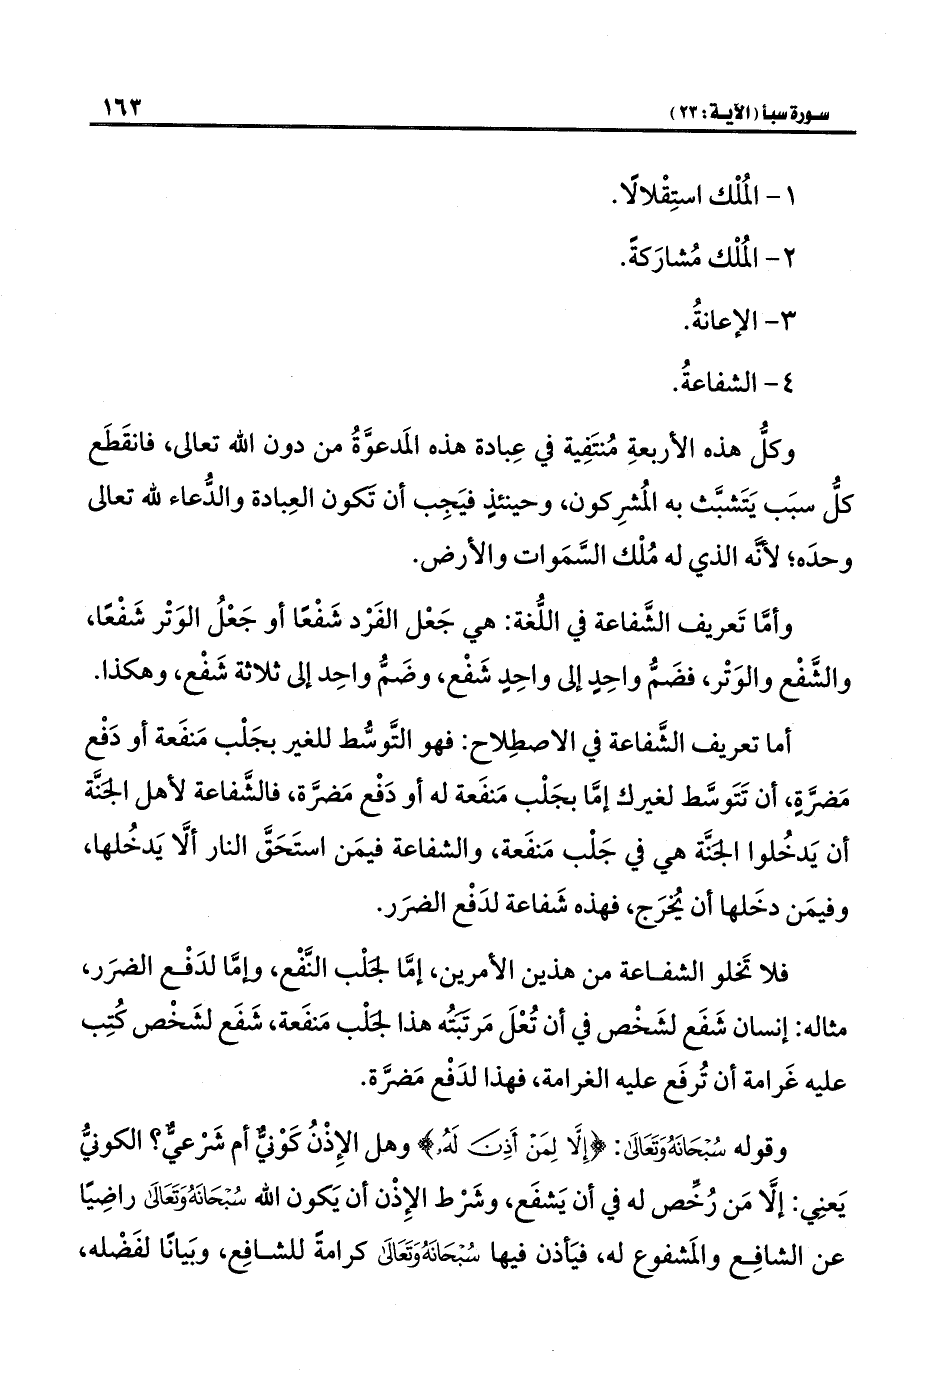 سورة سبأ (الآية: ٢٣) ١٦٣
١- المُلْك استِقْلالًا.
٢- المُلْك مُشارَكةً.
٣- الإعانةُ.
٤- الشفاعةُ.
وكلُّ هذه الأربعةِ مُنتَفِية في عِبادة هذه المَدعوَّةُ من دون الله تعالى، فانقَطَع
كلُّ سبَب يَتَشبَّث به المُشرِكون، وحينئذٍ فيَجِب أن تَكون العِبادة والدُّعاء لله تعالى
وحدَه؛ لأنَّه الذي له مُلْك السَّمَوات والأرض.
وأمَّا تَعريف الشَّفاعة في اللُّغة: هي جَعْل الفَرْد شَفْعًا أو جَعْلُ الوَتْر شَفْعًا،
والشَّفْع والوَتْر، فضَمُّ واحِدٍ إلى واحِدٍ شَفْع، وضَمُّ واحِد إلى ثلاثة شَفْع، وهكذا.
أما تعريف الشَّفاعة في الاصطِلاح: فهو التَّوسُّط للغير بجَلْب مَنفَعة أو دَفْع
مَضرَّةٍ، أن تَتَوسَّط لغيرك إمَّا بجَلْب مَنفَعة له أو دَفْع مَضرَّة، فالشَّفاعة لأهل الجَنَّة
أن يَدخُلوا الجَنَّة هي في جَلْب مَنفَعة، والشفاعة فيمَن استَحَقَّ النار ألَّا يَدخُلها،
وفيمَن دخَلها أن يُخرَج، فهذه شَفاعة لدَفْع الضرَر.
فلا تَخلو الشفاعة من هذين الأمرين، إمَّا لجَلْب النَّفْع، وإمَّا لدَفْع الضرَر،
مثاله: إنسان شَفَع لشَخْص في أن تُعْلَ مَرتَبَتُه هذا لجَلْب مَنفَعة، شَفَع لشَخْص كُتِب
عليه غَرامة أن تُرفَع عليه الغرامة، فهذا لدَفْع مَضرَّة.
وقوله سُبْحَانَهُ وَتَعَالَى: ﴿إِلَّا لِمَنْ أَذِنَ لَهُ﴾ وهل الإِذْنُ كَوْنيٌّ أم شَرْعيٌّ؟ الكونيُّ
يَعنِي: إلَّا مَن رُخِّص له في أن يَشفَع، وشَرْط الإِذْن أن يَكون الله سُبْحَانَهُ وَتَعَالَى راضِيًا
عن الشافِع والمَشفوع له، فيَأذن فيها سُبْحَانَهُ وَتَعَالَى كرامةً للشافِع، وبَيانًا لفَضْله،